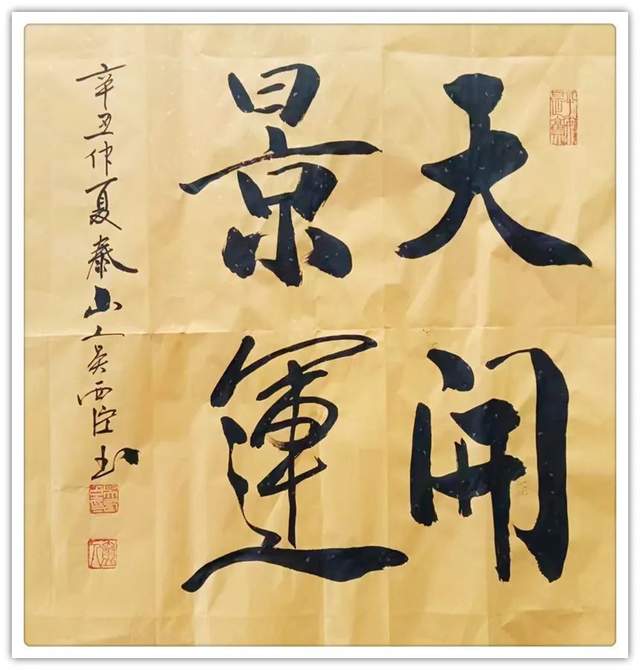 天開
景運
辛丑仲夏泰山人吳西臣书